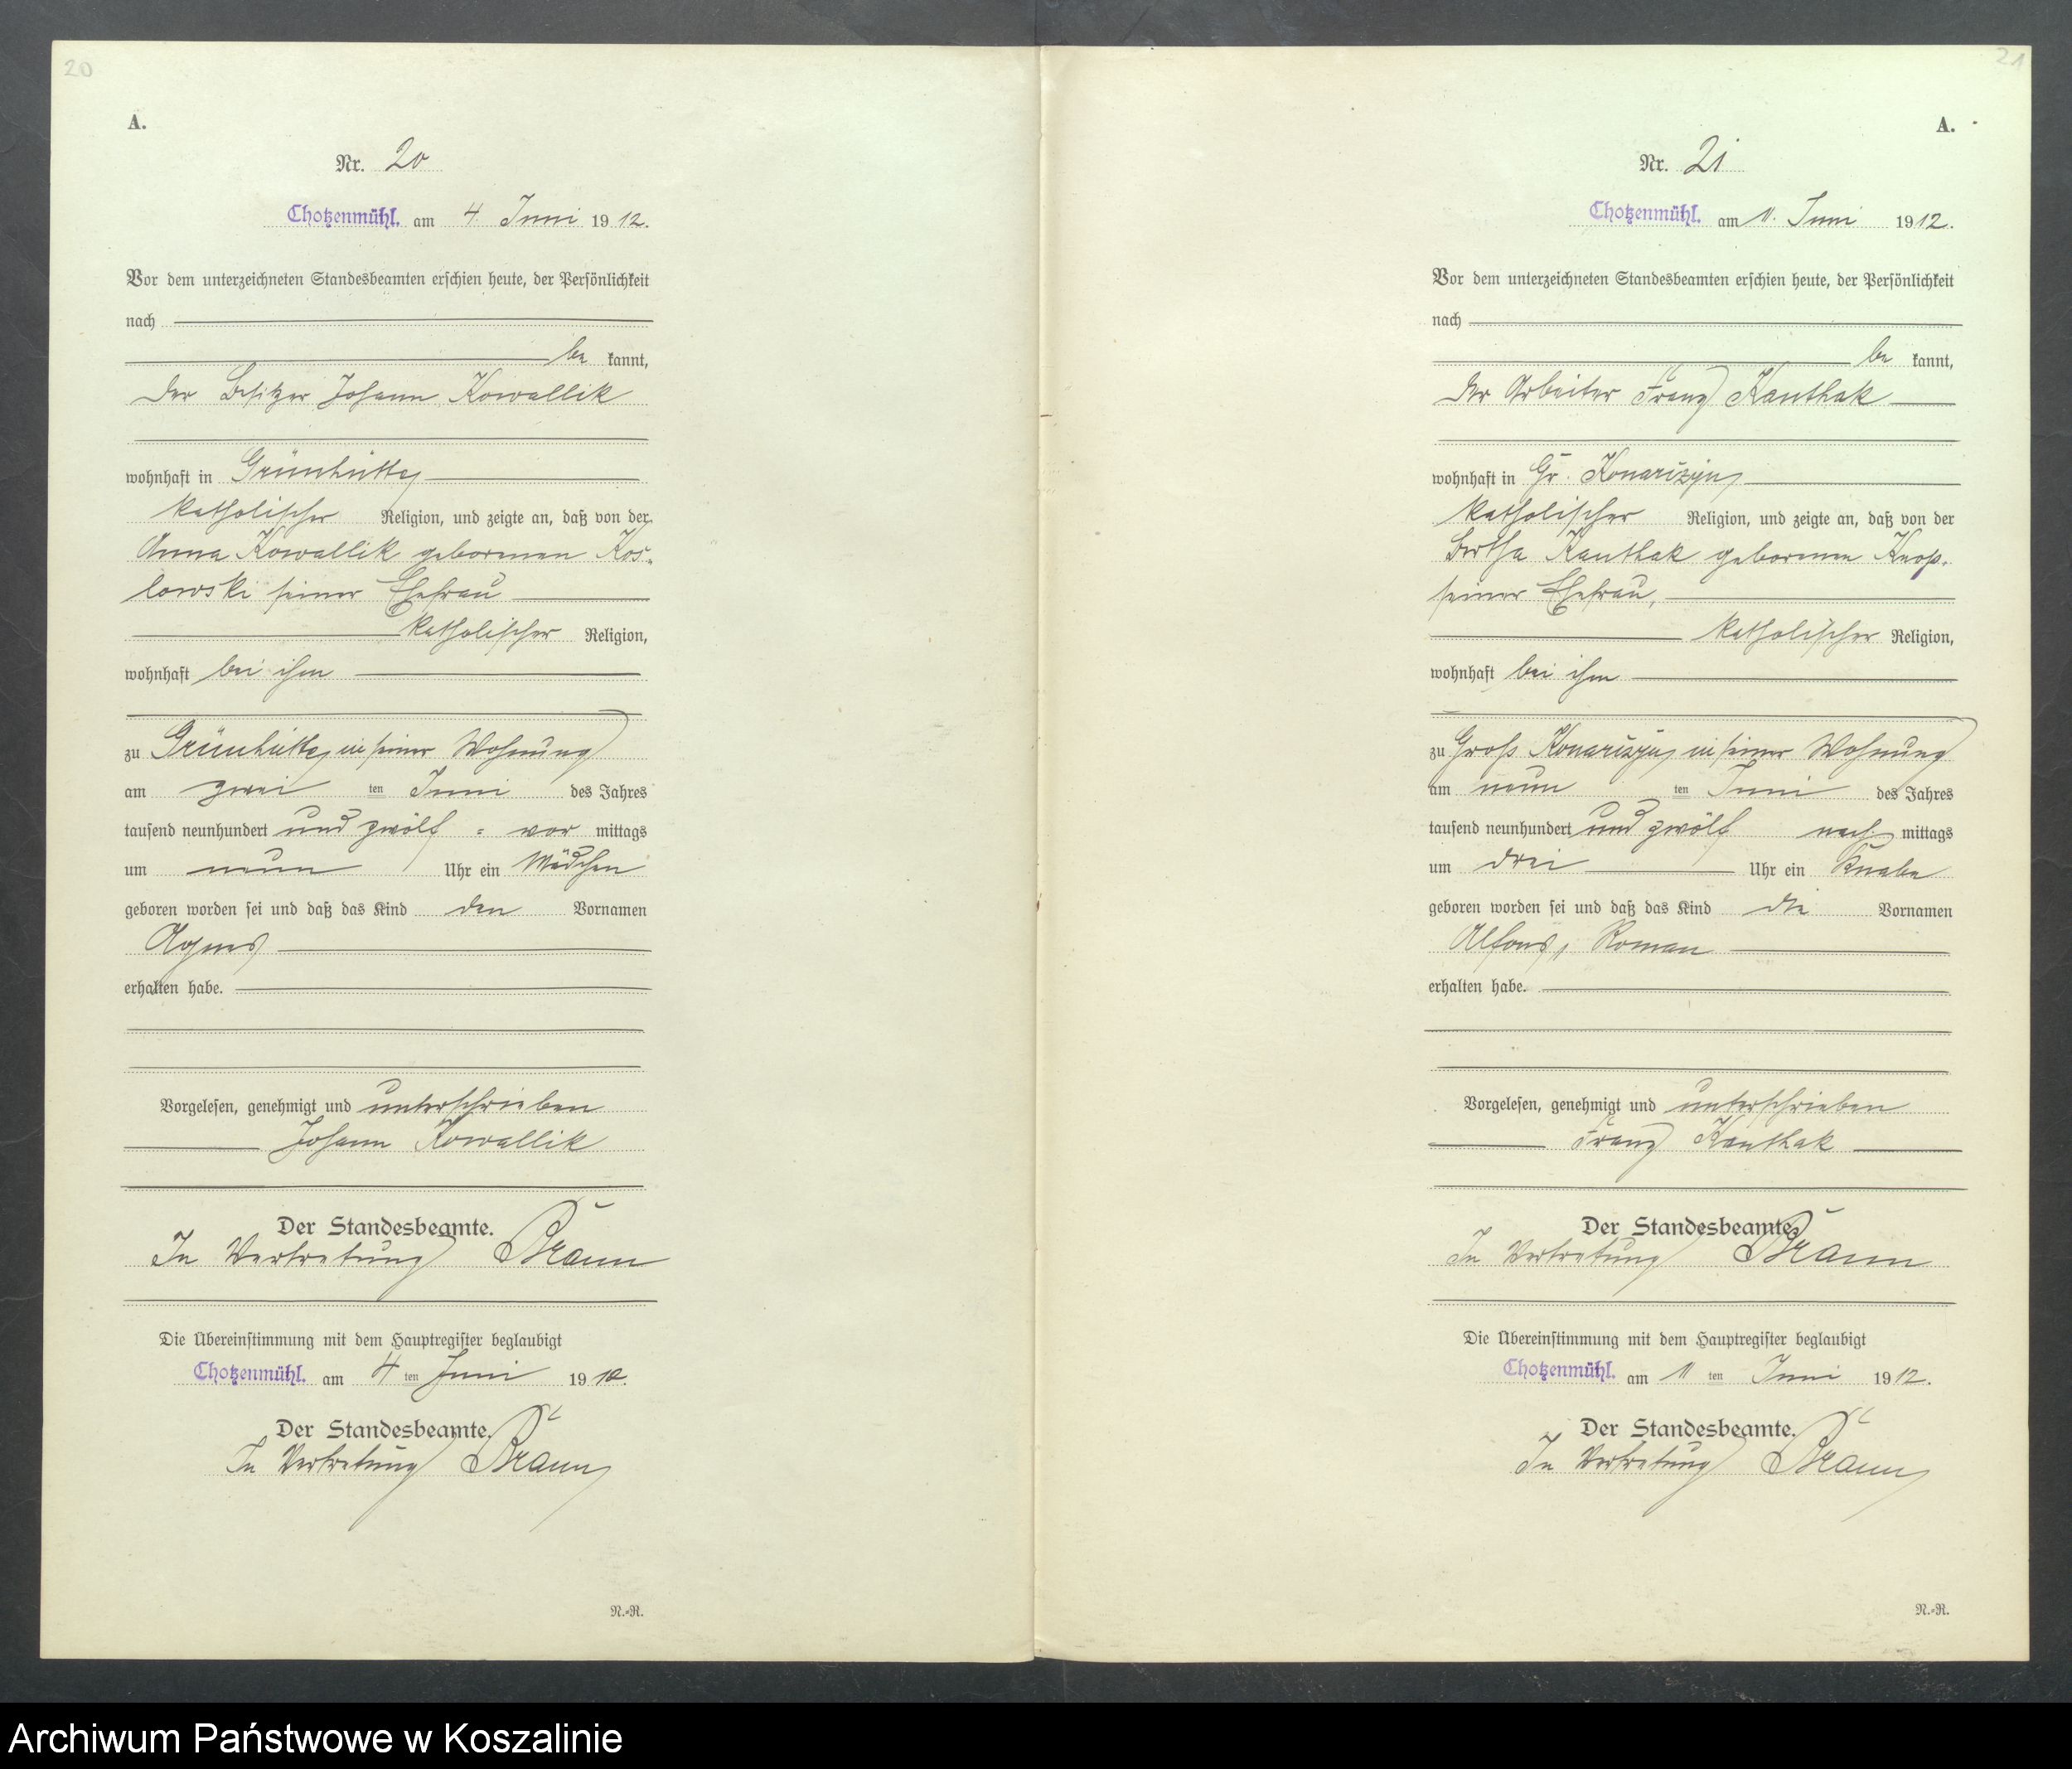 20
A.
Nr. 20
Chotzenmühl. am 4. Juni 1912.
Vor dem unterzeichneten Standesbeamten erschien heute, der Persönlichkeit
nach
be kannt,
der Besitzer Johann Kowallik
wohnhaft in Grünhütte,
katholischer Religion, und zeigte an, daß von der
Anna Kowallik geborenen Kos-
lowski seiner Ehefrau
katholischer Religion,
wohnhaft bei ihm
zu Grünhütte, in seiner Wohnung
am zwei ten Juni des Jahres
tausend neunhundert und zwölf - vor mittags
um neun Uhr ein Mädchen
geboren worden sei und daß das Kind den Vornamen
Agnes
erhalten habe.
Vorgelesen, genehmigt und unterschrieben
Johann Kowallik
Der Standesbeamte.
In Vertretung Braun
Die Übereinstimmung mit dem Hauptregister beglaubigt
Chotzenmühl. am 4 ten Juni 1912.
Der Standesbeamte.
In Vertretung Braun
N.-R.
21
A.
Nr. 21
Chotzenmühl. am 11. Juni 1912.
Vor dem unterzeichneten Standesbeamten erschien heute, der Persönlichkeit
nach
be kannt,
der Arbeiter Franz Kanthak
wohnhaft in Gr. Konarczyn,
katholischer Religion, und zeigte an, daß von der
Bertha Kanthak geborenen Knop,
seiner Ehefrau,
katholischer Religion,
wohnhaft bei ihm
zu Groß Konarczyn, in seiner Wohnung
am neun ten Juni des Jahres
tausend neunhundert und zwölf nach mittags
um drei Uhr ein Knabe
geboren worden sei und daß das Kind die Vornamen
Alfons, Roman
erhalten habe.
Vorgelesen, genehmigt und unterschrieben
Franz Kanthak
Der Standesbeamte.
In Vertretung Braun
Die Übereinstimmung mit dem Hauptregister beglaubigt
Chotzenmühl. am 11 ten Juni 1912.
Der Standesbeamte.
In Vertretung Braun
N.-R.
Archiwum Państwowe w Koszalinie